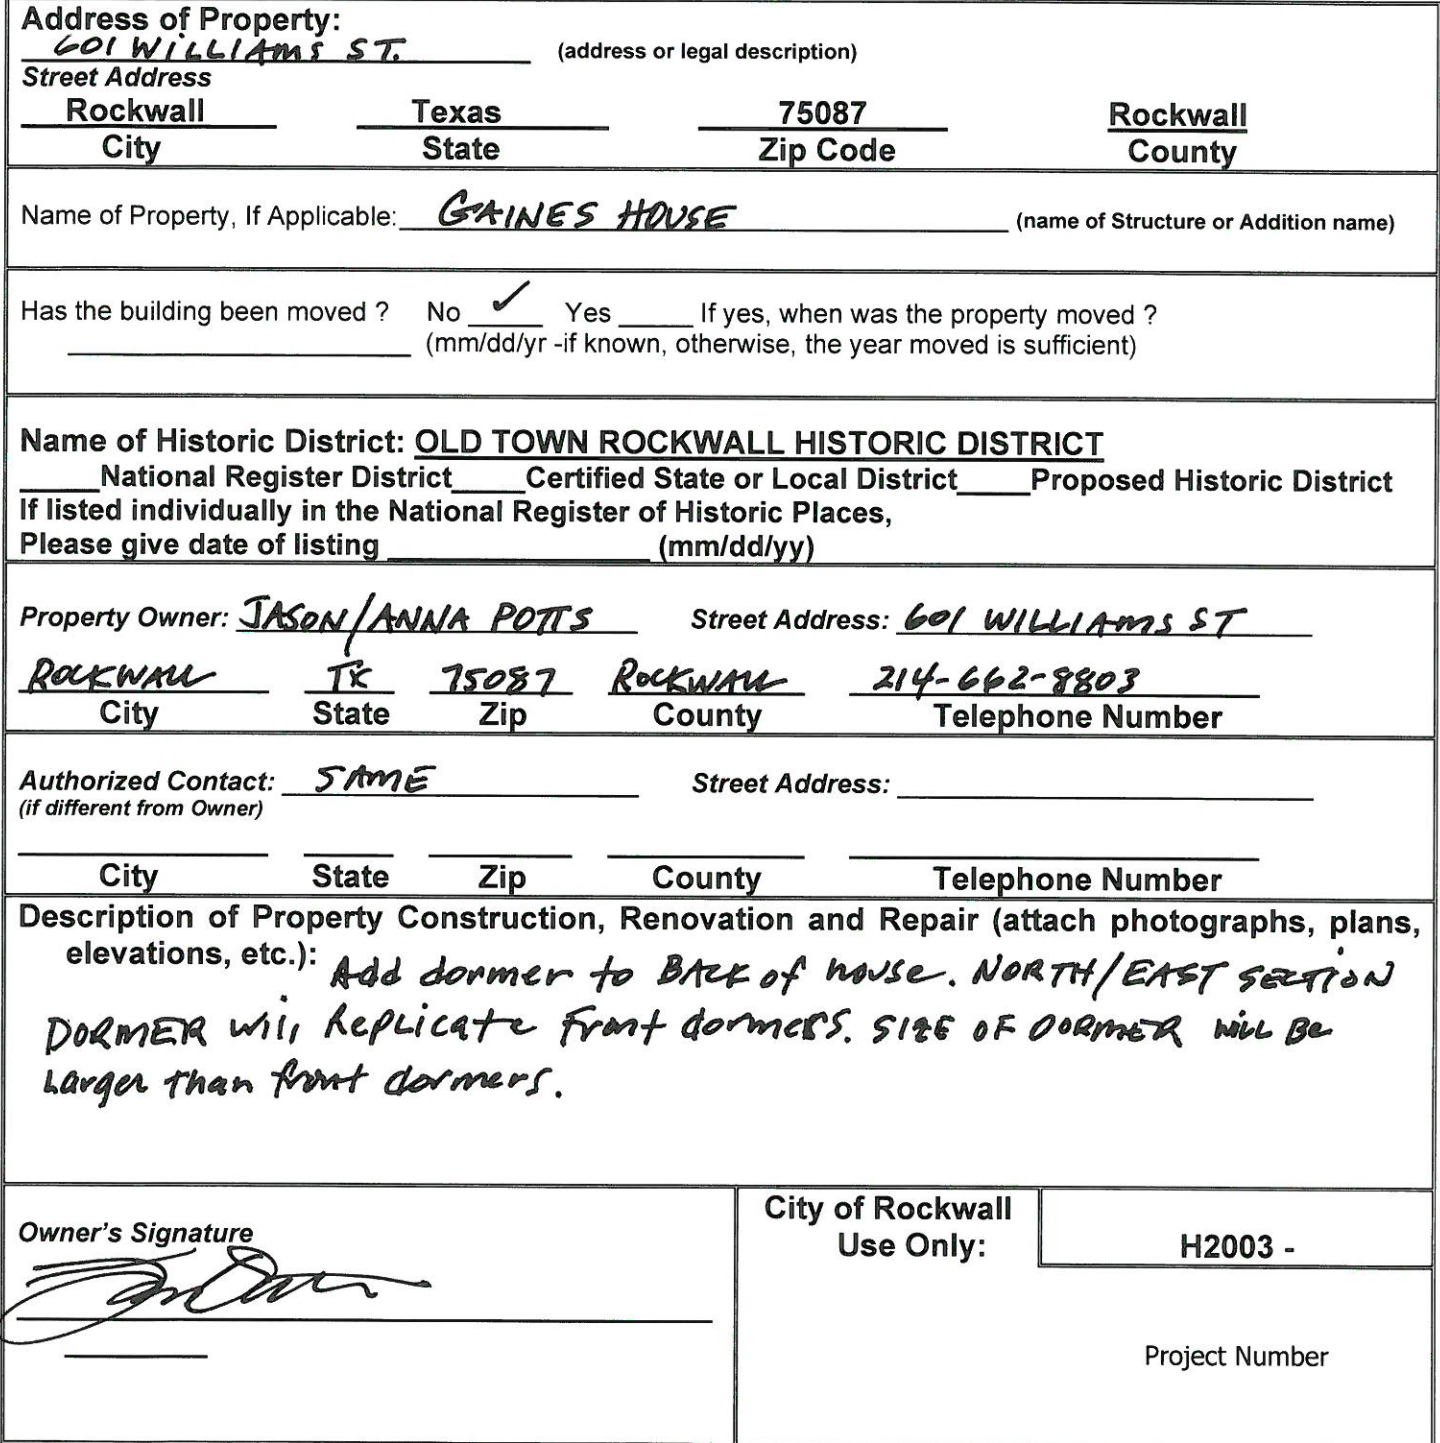 Address of Property:
601 WILLIAMS ST. (address or legal description)
Street Address
Rockwall Texas 75087 Rockwall
City State Zip Code County
Name of Property, If Applicable: GAINES HOUSE (name of Structure or Addition name)
Has the building been moved ? No ✓ Yes ____ If yes, when was the property moved ?
____ (mm/dd/yr -if known, otherwise, the year moved is sufficient)
Name of Historic District: OLD TOWN ROCKWALL HISTORIC DISTRICT
____National Register District____Certified State or Local District____Proposed Historic District
If listed individually in the National Register of Historic Places,
Please give date of listing ____ (mm/dd/yy)
Property Owner: JASON/ANNA POTTS Street Address: 601 WILLIAMS ST
ROCKWALL TX 75087 ROCKWALL 214-662-8803
City State Zip County Telephone Number
Authorized Contact: SAME Street Address: ____
(if different from Owner)
City State Zip County Telephone Number
Description of Property Construction, Renovation and Repair (attach photographs, plans,
elevations, etc.): Add dormer to BACK of house. NORTH/EAST SECTION
DORMER will Replicate Front dormers. SIZE OF DORMER will Be
Larger than front dormers.
Owner's Signature
City of Rockwall
Use Only:
H2003 -
Project Number